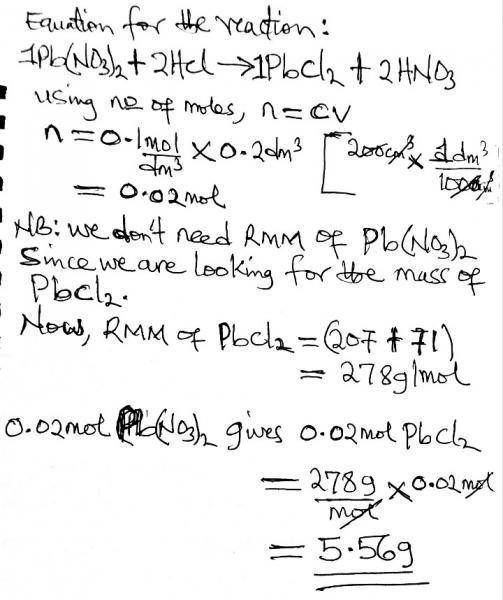 Equation for the reaction:
1Pb(NO3)2 + 2Hcl → 1PbCl2 + 2HNO3
using no of moles, n = CV
n = 0.1 mol/dm³ × 0.2dm³ [200cm³ × 1dm³/1000cm³
= 0.02mol
NB: we don't need RMM of Pb(NO3)2
Since we are looking for the mass of
PbCl2.
Now, RMM of PbCl2 = (207 + 71)
= 278g/mol
0.02mol Pb(NO3)2 gives 0.02mol PbCl2
= 278g/mol × 0.02mol
= 5.56g